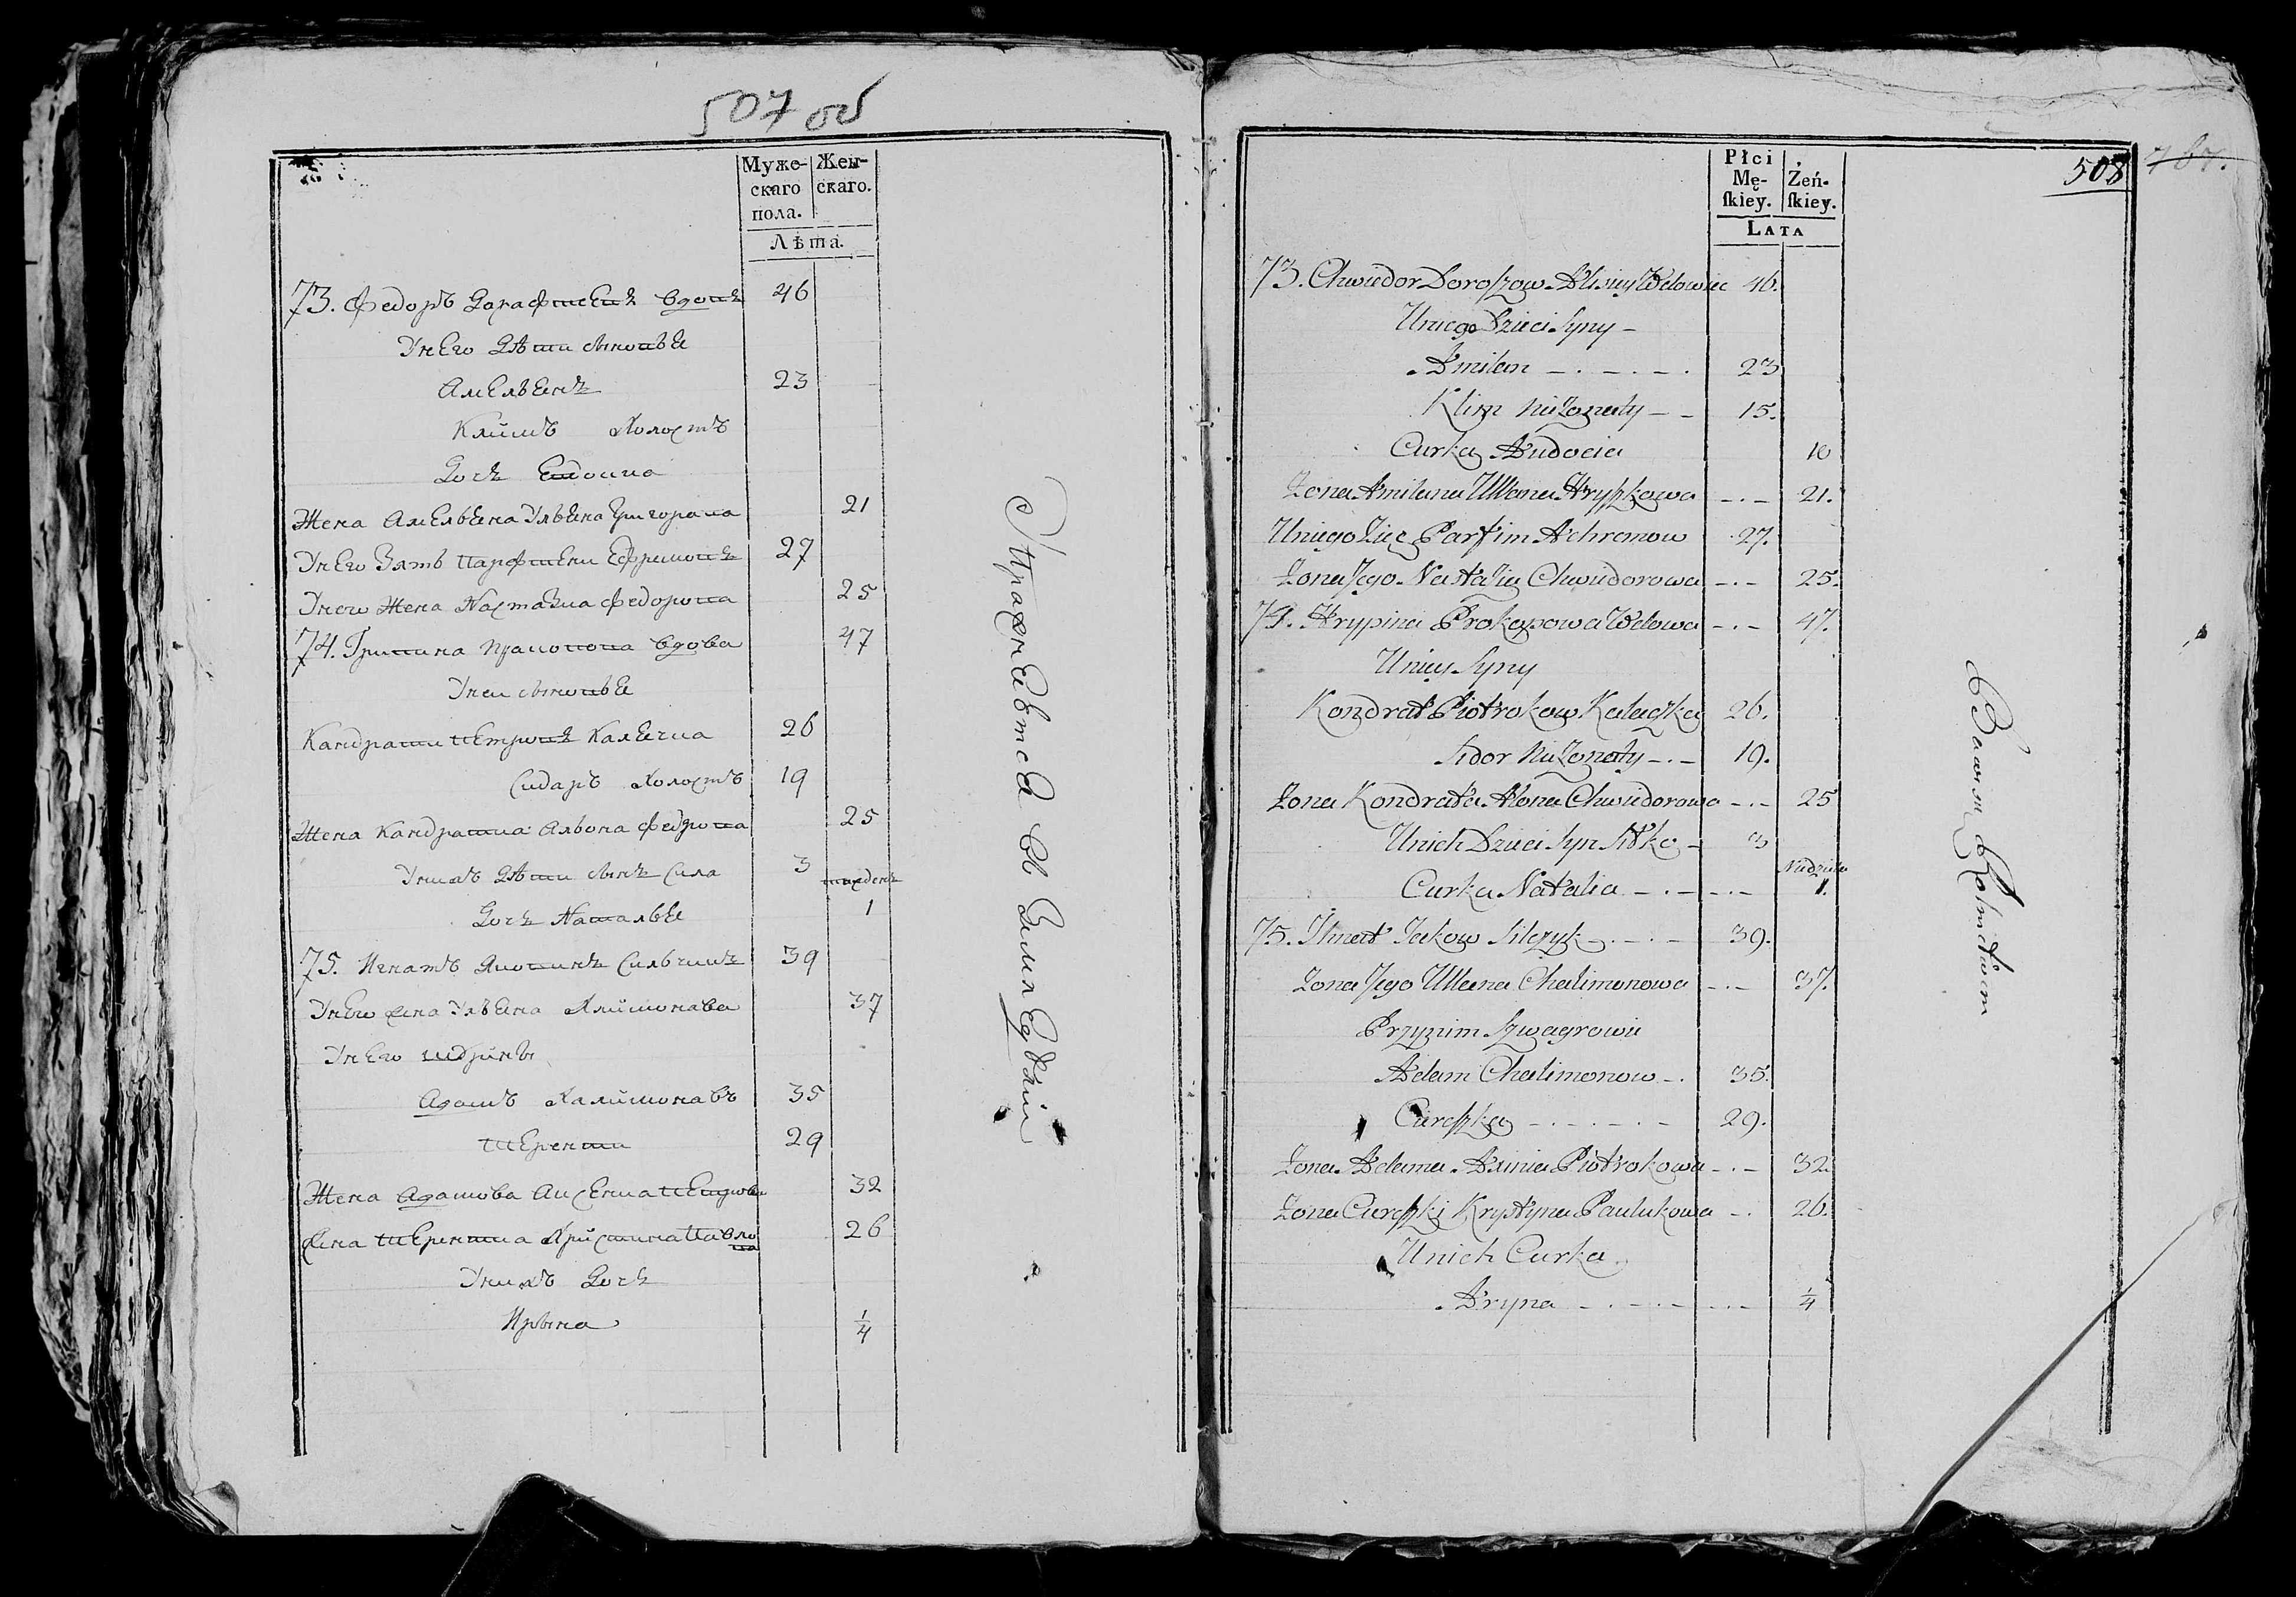 507 об
Муже-
скаго
пола.
Жен-
скаго.
Лѣта.
73. Федоръ вдовъ 46
Унего дѣти сыновья
Амельянъ 23
Климъ Холостъ
Дочь Евдокиа
Жена Амельяна Ульяна Григорова 21
Унего Зять Парфени Ефремовъ 27
Унего Жена Настазиа Федорова 25
74. Грипина вдова 47
Унеи сыновья
Кандрати Петровъ Калечка 26
Сидаръ Холостъ 19
Жена Кандратиа Альона Федрова 25
Унихъ дѣти сынъ Сила 3
тиждень
Дочь Наталья 1
75. Игнатъ Сильчикъ 39
Унего жена Ульяна Халимонава 37
Унего шурины
Адамъ Халимонавъ 35
Терешка 29
Жена Адамова Аксениа Петрова 32
жена Христина Павлова 26
Унихъ Дочь
Ирына 1/4
Упражняется въ Земледѣлии
508
767.
Płci
Mę-
ſkiey.
Żeń-
ſkiey.
LATA
73. Chwiedor Doroszow Wdowiec 46.
Uniego Dzieci Syny –
Amilan – . – . – . 23
Klim nieżonaty – – 15.
Curka Audocia 10
Żona Amilana Ullana Hryszkowa – . – 21.
Uniego Zięc Parfim Achremow 27.
Żona Jego Nastazia Chwiedorowa – . – 25.
74. Hrypina Prokopowa Wdowa – . – 47.
Uniey Syny
Kondrat Piotrokow Kaleczka 26.
Sidor nieżonaty – . – 19.
Żona Kondrata Alona Chwiedorowa – . – 25
Unich Dzieci Syn Sitko – 3
Niedziela
Curka Natalia – . – – . – 1.
75. Ihnat Jakow Silczyk – . – . – 39.
Żona Jego Ullana Chalimonowa – . – 37.
Przynim Szwagrowie
Adam Chalimonow – . 35.
Cereszka – . – . – . – 29.
Żona Adama Axinia Piotrokowa – . – 32.
Żona Cereszki Krystyna Paulukowa – . 26.
Unich Curka
Aryna – . – . – – . – 1/4
Bawem Rolnictwem